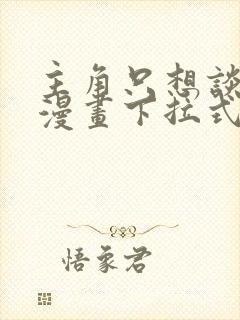 主角只想談
漫畫下拉式
悟象君